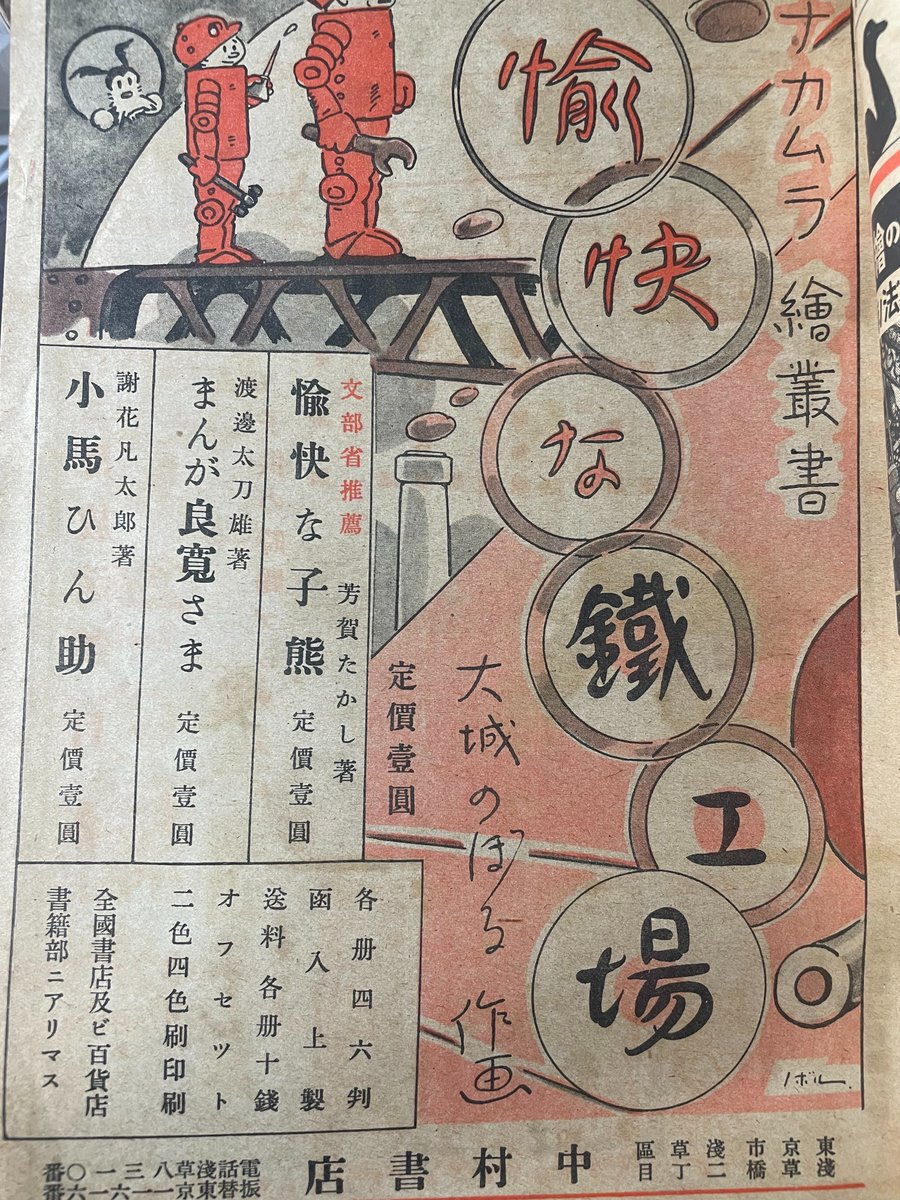 ナカムラ繪叢書
愉快な鐵工場
大城のぼる 作画
定價壹圓
ノボル
文部省推薦
芳賀たかし著
愉快な子熊 定價壹圓
渡邊太刀雄著
まんが良寬さま 定價壹圓
謝花凡太郎著
小馬ひん助 定價壹圓
各册四六判
函入上製
送料各册十錢
オフセット
二色四色刷印刷
全國書店及ビ百貨店
書籍部ニアリマス
東京市淺草區
淺草橋二丁目
中村書店
電話淺草
振替東京